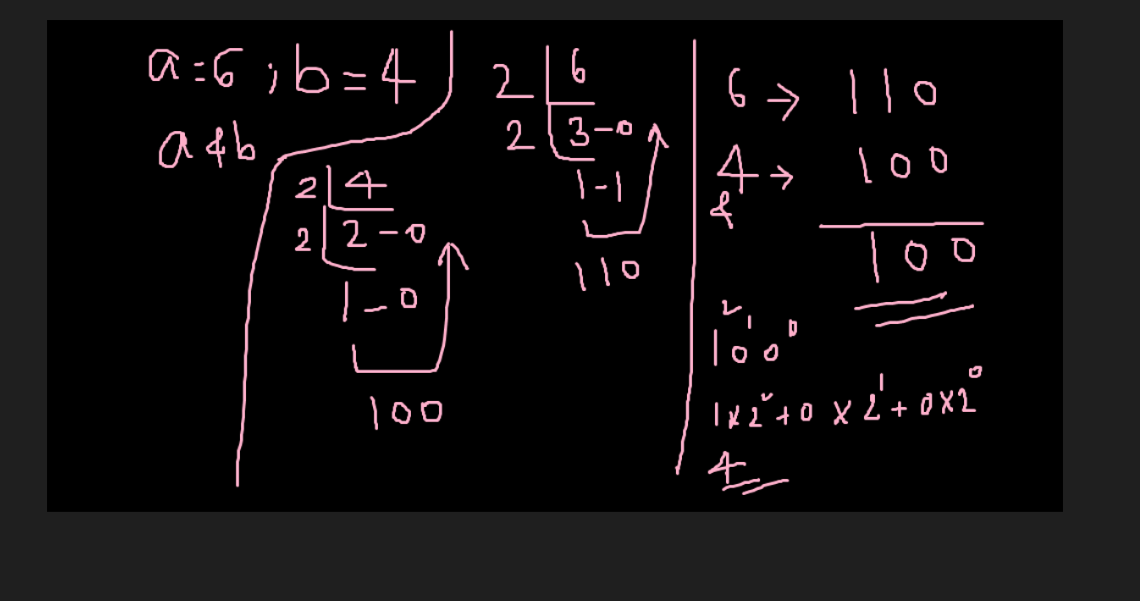 a=6 ; b=4
a&b
2 | 4
2 | 2-0
1-0
100
2 | 6
2 | 3-0
1-1
110
6 → 110
4 → 100
&
100
1²0¹0⁰
1×2²+0×2¹+0×2⁰
4